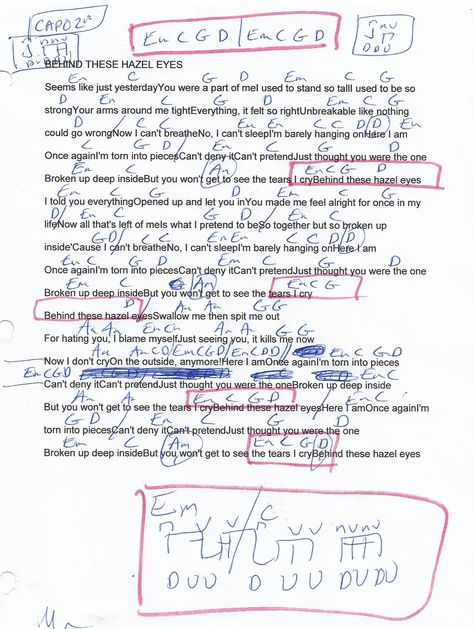 CAPO 2nd
Em C G D | Em C G D
D U U
BEHIND THESE HAZEL EYES
Em C G D Em C G
Seems like just yesterdayYou were a part of meI used to stand so tallI used to be so
D Em C G D Em C G
strongYour arms around me tightEverything, it felt so rightUnbreakable like nothing
D Em C C Em Em C C D (D)
could go wrongNow I can't breatheNo, I can't sleepI'm barely hanging onHere I am
Em C G D Em C G D
Once againI'm torn into piecesCan't deny itCan't pretendJust thought you were the one
Em C (Am) Em C G D
Broken up deep insideBut you won't get to see the tears I cryBehind these hazel eyes
Em C G D Em C G
I told you everythingOpened up and let you inYou made me feel alright for once in my
D Em C G D Em C
lifeNow all that's left of meIs what I pretend to beSo together but so broken up
G D Em C C Em Em C C D (D)
inside'Cause I can't breatheNo, I can't sleepI'm barely hanging onHere I am
Em C G D Em C G D
Once againI'm torn into piecesCan't deny itCan't pretendJust thought you were the one
Em C (Am) Em C G
Broken up deep insideBut you won't get to see the tears I cry
D Am Am G G
Behind these hazel eyesSwallow me then spit me out
Am Am Em Em Am Am G G
For hating you, I blame myselfJust seeing you, it kills me now
Am Am C D Em C G D Em C D D Em C G D
Now I don't cryOn the outside, anymore!Here I amOnce againI'm torn into pieces
Em C G D Em C
Can't deny itCan't pretendJust thought you were the oneBroken up deep inside
Am Am Em C G D
But you won't get to see the tears I cryBehind these hazel eyesHere I amOnce againI'm
C G D Em C G D
torn into piecesCan't deny itCan't pretendJust thought you were the one
Em C (Am) Em C G D
Broken up deep insideBut you won't get to see the tears I cryBehind these hazel eyes
Em C
D U U D U U D U D U